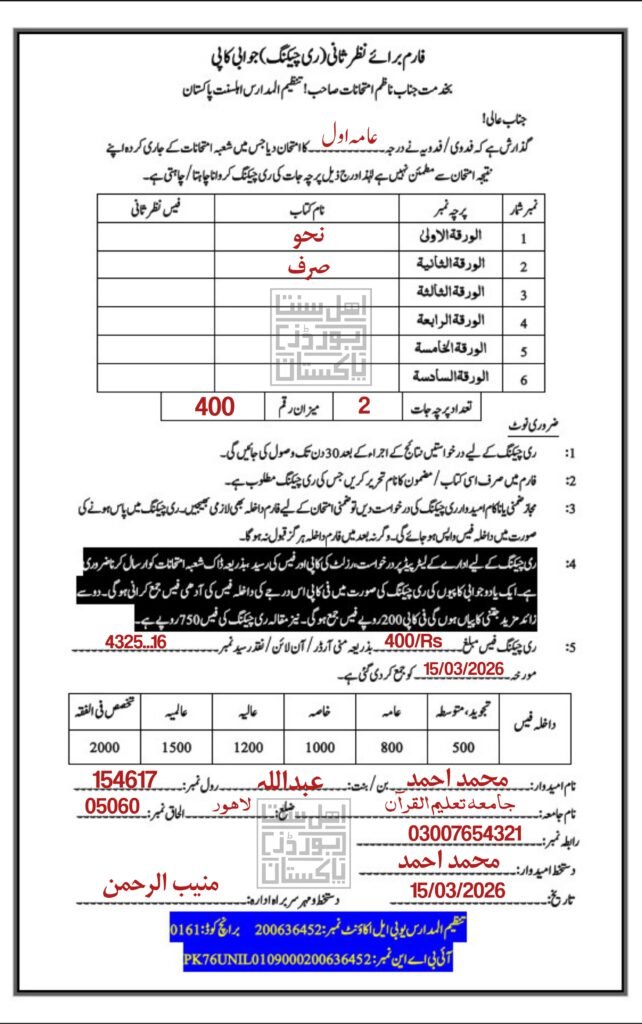 فارم برائے نظر ثانی (ری چیکنگ) جوابی کاپی
بخدمت جناب ناظم امتحانات صاحب! تنظیم المدارس اہلسنت پاکستان
جناب عالی!
گذارش ہے کہ فدوی/فدویہ نے درجہ عامہ اول کا امتحان دیا جس میں شعبہ امتحانات کے جاری کردہ اپنے
نتیجہ امتحان سے مطمئن نہیں ہے لہٰذا درج ذیل پرچہ جات کی ری چیکنگ کروانا چاہتا/چاہتی ہے۔
نمبر شمار پرچہ نمبر نام کتاب فیس نظر ثانی
1 الورقۃ الاولیٰ نحو
2 الورقۃ الثانیۃ صرف
3 الورقۃ الثالثۃ
4 الورقۃ الرابعۃ
5 الورقۃ الخامسۃ
6 الورقۃ السادسۃ
اهل سنت
بورڈز
پاکستان
تعداد پرچہ جات 2 میزان رقم 400
ضروری نوٹ
1: ری چیکنگ کے لیے درخواستیں نتائج کے اجراء کے بعد 30 دن تک وصول کی جائیں گی۔
2: فارم میں صرف اسی کتاب/مضمون کا نام تحریر کریں جس کی ری چیکنگ مطلوب ہے۔
3: مجاز ضمنی یا ناکام امیدوار ری چیکنگ کی درخواست دیں تو ضمنی امتحان کے لیے فارم داخلہ بھی لازمی بھیجیں۔ ری چیکنگ میں پاس ہونے کی
صورت میں داخلہ فیس واپس ہو جائے گی۔ وگرنہ بعد میں فارم داخلہ ہرگز قبول نہ ہوگا۔
4: ری چیکنگ کے لیے ادارے کے لیٹر پیڈ پر درخواست، رزلٹ کی کاپی اور فیس کی رسید بذریعہ ڈاک شعبہ امتحانات کو ارسال کرنا ضروری
ہے۔ ایک یا دو جوابی کاپیوں کی ری چیکنگ کی صورت میں فی کاپی اس درجے کی داخلہ فیس کی آدھی فیس جمع کرانی ہوگی۔ دو سے
زائد مزید جتنی کاپیاں ہوں گی فی کاپی 200 روپے فیس جمع ہوگی۔ نیز مقالہ ری چیکنگ کی فیس 750 روپے ہے۔
5: ری چیکنگ فیس مبلغ 400/Rs بذریعہ منی آرڈر/آن لائن/نقد رسید نمبر 4325...16
مورخہ 15/03/2026 کو جمع کر دی گئی ہے۔
داخلہ فیس تجوید، متوسطہ عامہ خاصہ عالیہ عالمیہ تخصص فی الفقہ
500 800 1000 1200 1500 2000
نام امیدوار: محمد احمد بن/بنت: عبداللہ رول نمبر: 154617
نام جامعہ: جامعہ تعلیم القرآن ضلع: لاہور الحاق نمبر: 05060
اهل سنت
بورڈز
پاکستان
رابطہ نمبر: 03007654321
دستخط امیدوار: محمد احمد
تاریخ: 15/03/2026 دستخط و مہر سربراہ ادارہ: منیب الرحمن
تنظیم المدارس یو بی ایل اکاؤنٹ نمبر: 200636452 برانچ کوڈ: 0161
آئی بی اے این نمبر: PK76UNIL0109000200636452